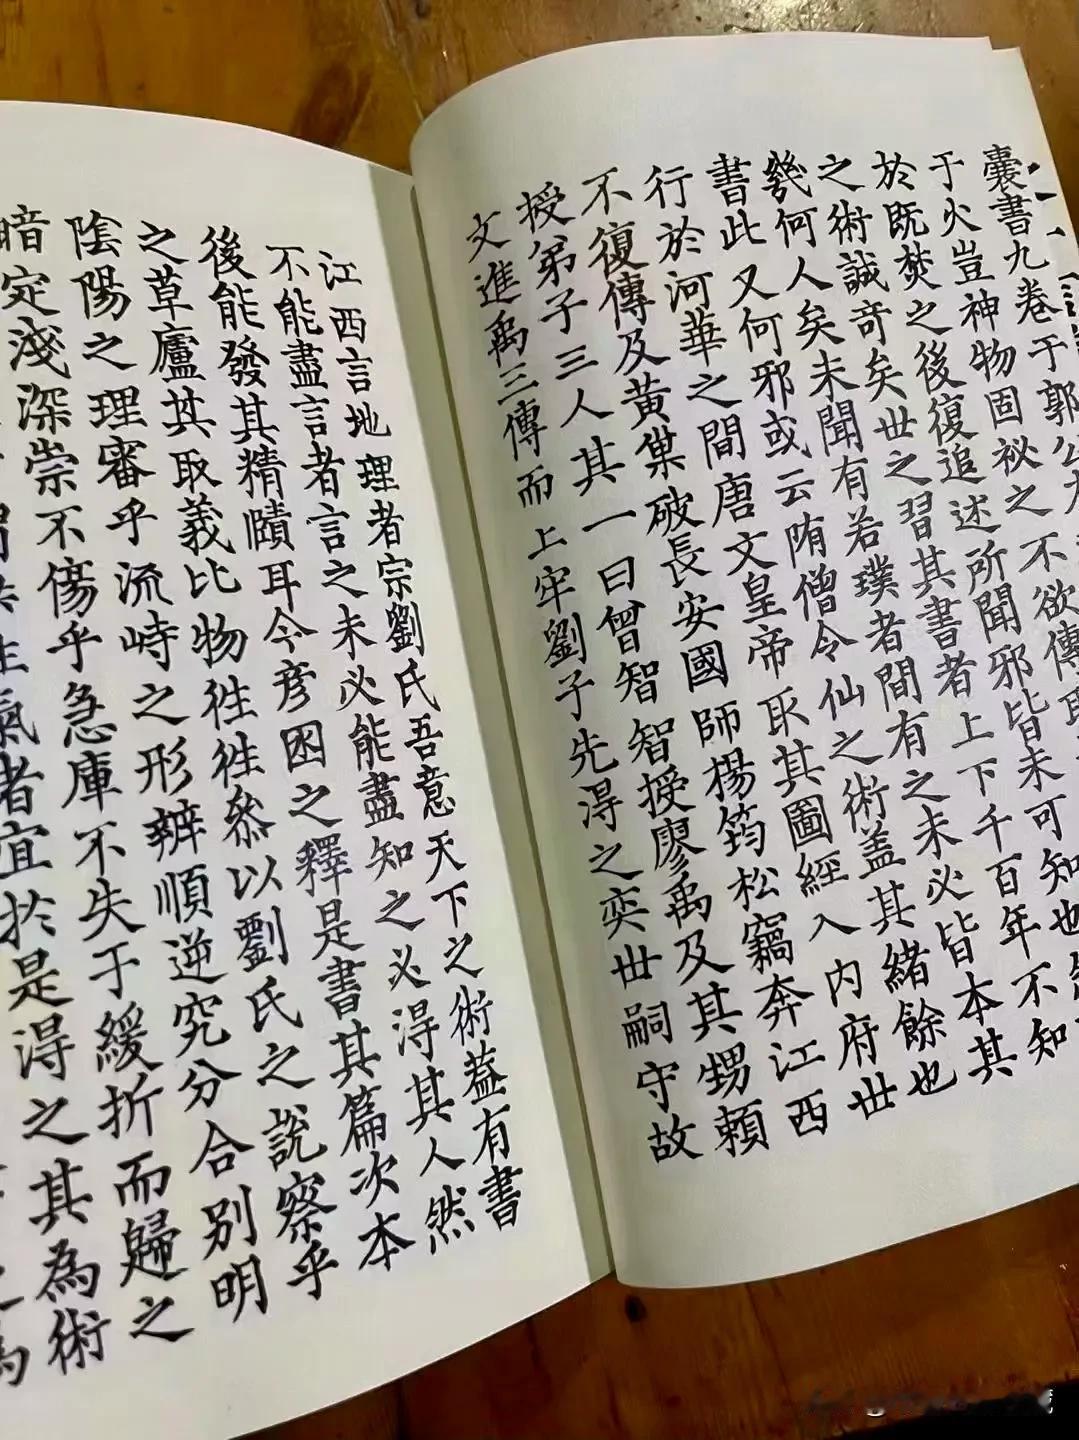 囊書九卷于郭公
于火豈神物固祕之不欲傳耶
於既焚之後復追述所聞邪皆未可知也
之術誠奇矣世之習其書者上下千百年不知
幾何人矣未聞有若璞者間有之未必皆本其
書此又何邪或云隋僧令仙之術盖其緒餘也
行於河華之間唐文皇帝取其圖經入内府世
不復傳及黄巢破長安國師楊筠松竊奔江西
授弟子三人其一曰曾智智授廖禹及其甥賴
文進禹三傳而上牢劉子先得之奕世嗣守故
江西言地理者宗劉氏吾意天下之術葢有書
不能盡言者言之未必能盡知之必得其人然
後能發其精賾耳今彦困之釋是書其篇次本
之草廬其取義比物徃徃叅以劉氏之說察乎
陰陽之理審乎流峙之形辨順逆究分合别明
暗定淺深崇不傷乎急庳不失于緩折而歸之
生氣者宜於是得之其為術